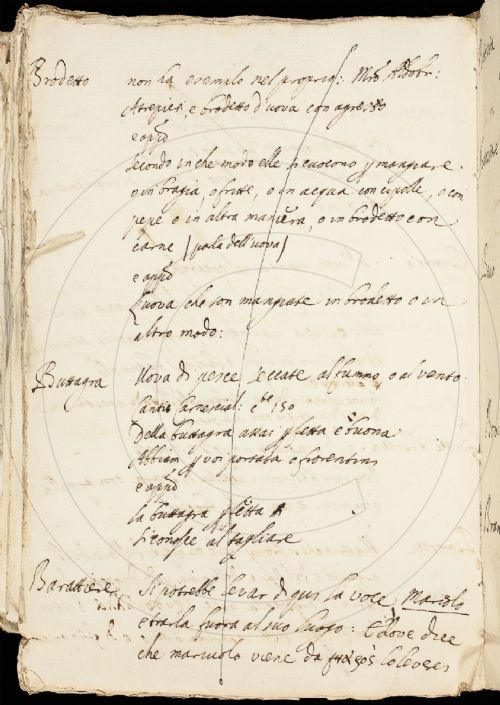 Brodetto non ha esempio nel proprio: Mrõ Aldobr:
Atrepici, e brodetto d'uova con agresto
e appõ
secondo in che modo elle si cuocono p mangiare.
o in bragia, o fritte, o in acqua con cipolle, o con
pepe o in altra maniera, o in brodetto con
carne (parla dell'uova)
e appõ
L'uova che son mangiate in brodetto o in
altro modo:
Buttagra Uova di pesce seccate al fummo o al vento.
Canti Carnescial: 150
Della buttagra assai p letta e buona
Abbiam p voi portata o fiorentini
e appõ
la buttagra p letta
si conosce al tagliare
Barattiere Si potrebbe levar di qui la voce Mariolo
e trarla fuora al suo luogo: E dove dice
che mariuolo viene da lo leverei